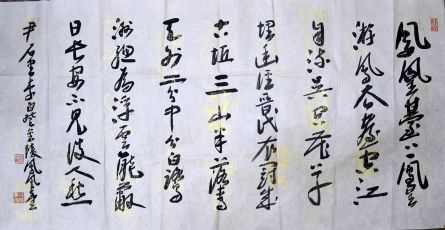 鳳凰臺上鳳凰
遊鳳去臺空江
自流吳宮花草
埋幽徑晉代衣冠成
古坵三山半落青
天外二水中分白鷺
洲總為浮雲能蔽
日長安不見使人愁
李白登金陵鳳凰臺